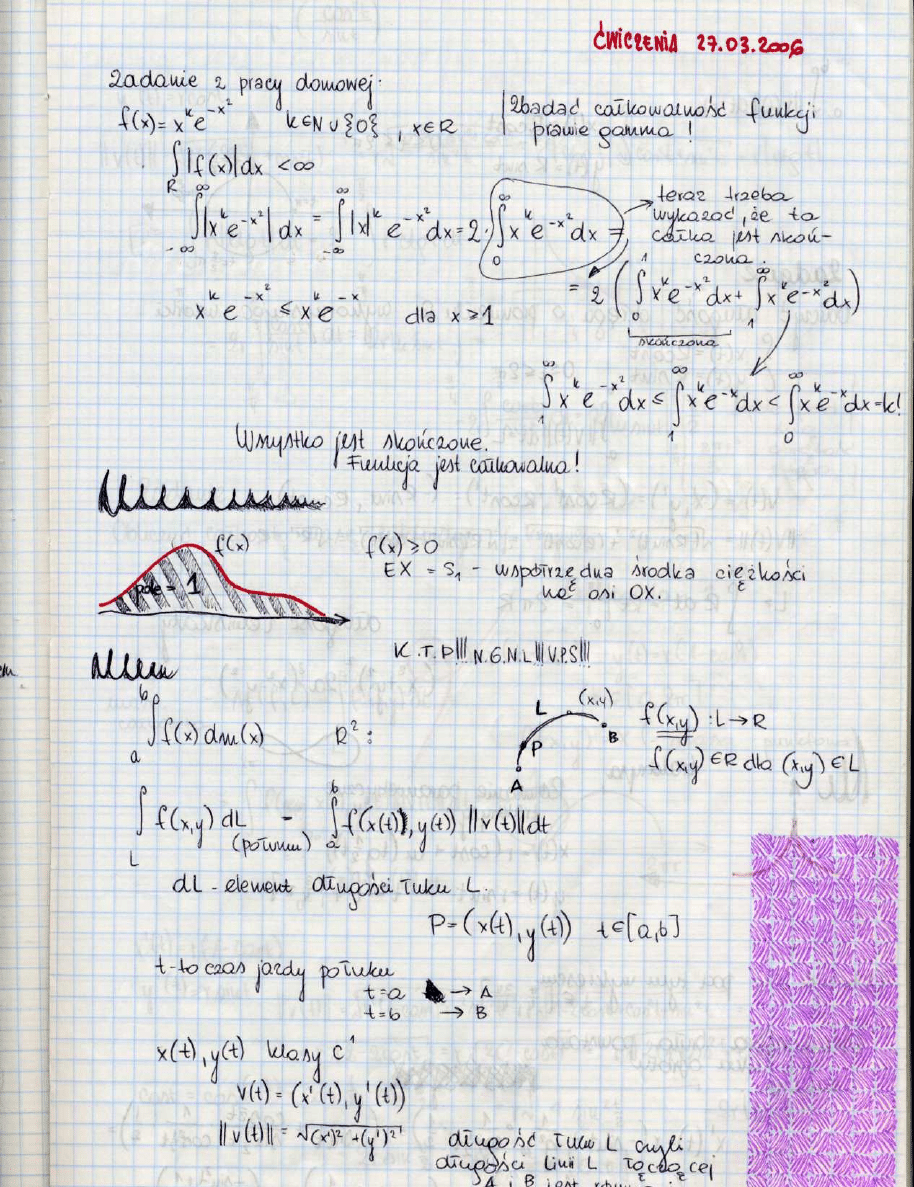 ĆWICZENIA 27.03.2006
Zadanie 2 pracy domowej:
f(x)= x^k e^{-x^2} k∈N∪{0}, x∈R
Zbadać całkowalność funkcji
prawie gamma!
∫_R |f(x)|dx < ∞
∫_{-∞}^{∞} |x^k e^{-x^2}| dx = ∫_{-∞}^{∞} |x|^k e^{-x^2} dx = 2·∫_0^∞ x^k e^{-x^2} dx =
teraz trzeba
wykazać, że ta
całka jest skoń-
czona.
= 2 (∫_0^1 x^k e^{-x^2} dx + ∫_1^∞ x^k e^{-x^2} dx)
skończona
x^k e^{-x^2} ≤ x^k e^{-x} dla x ≥ 1
∫_1^∞ x^k e^{-x^2} dx ≤ ∫_1^∞ x^k e^{-x} dx < ∫_0^∞ x^k e^{-x} dx = k!
Wszystko jest skończone.
Funkcja jest całkowalna!
f(x)
pole = 1
f(x) ≥ 0
EX = S_1 - współrzędna środka ciężkości
na osi OX.
K.T.P!!! N.G.N.L!!! V.P.S!!!
∫_a^b f(x) dm(x) R²:
L (x,y) B P A
f(x,y) : L → R
f(x,y) ∈ R dla (x,y) ∈ L
∫_L f(x,y) dL - ∫_a^b f(x(t), y(t)) ||v(t)|| dt
(po łuku)
dL - element długości łuku L.
P = (x(t), y(t)) t∈[a,b]
t - to czas jazdy po łuku
t=a → A
t=b → B
x(t), y(t) klasy C^1
v(t) = (x'(t), y'(t))
||v(t)|| = √((x')² + (y')²)
długość łuku L czyli
długości linii L łączącej
A i B jest